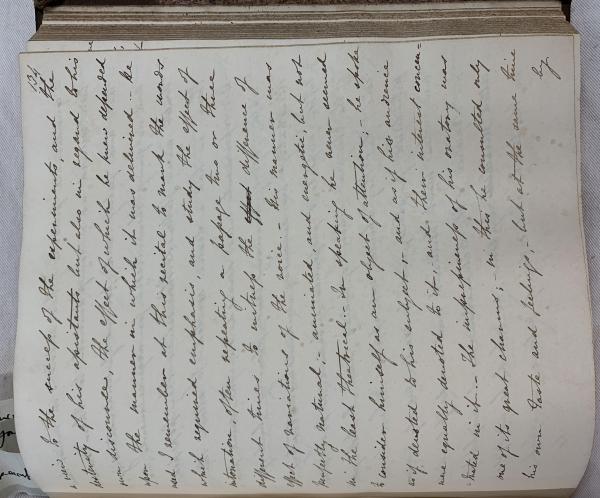 view to the success of the experiments, and the
dexterity of his assistants, but also in regard to his
own discourse, the effect of which he knew depended
upon the manner in which it was delivered. – He
used I remember at this recital to mark the words
which required emphasis, and study the effect of
intonation, often repeating a passage two or three
different times to witness the difference of
effect of variations of the voice. – His manner was
perfectly natural, – animated, and energetic, but not
in the least theatrical. – In speaking he never seemed
to consider himself as an object of attention; – he spoke
as if devoted to his subject, and as if his audience
were equally devoted to it, and their interest concen=
trated in it. – The impressiveness of his oratory was
one of its great charms; – in this he consulted only
his own taste and feelings, – but at the same time
by